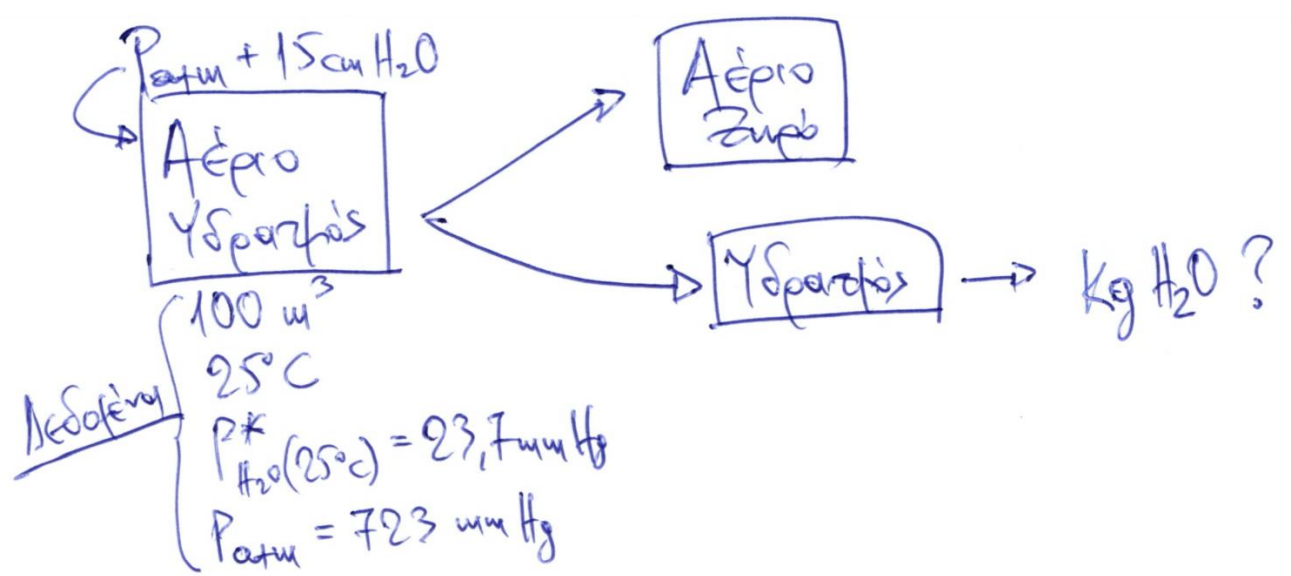 Patm + 15cm H₂O
Αέριο
Υδρατμός
Αέριο
Ξηρό
Υδρατμός
Kg H₂O ?
Δεδομένα
100 m³
25°C
P*H₂O(25°C) = 23,7 mm Hg
Patm = 723 mm Hg